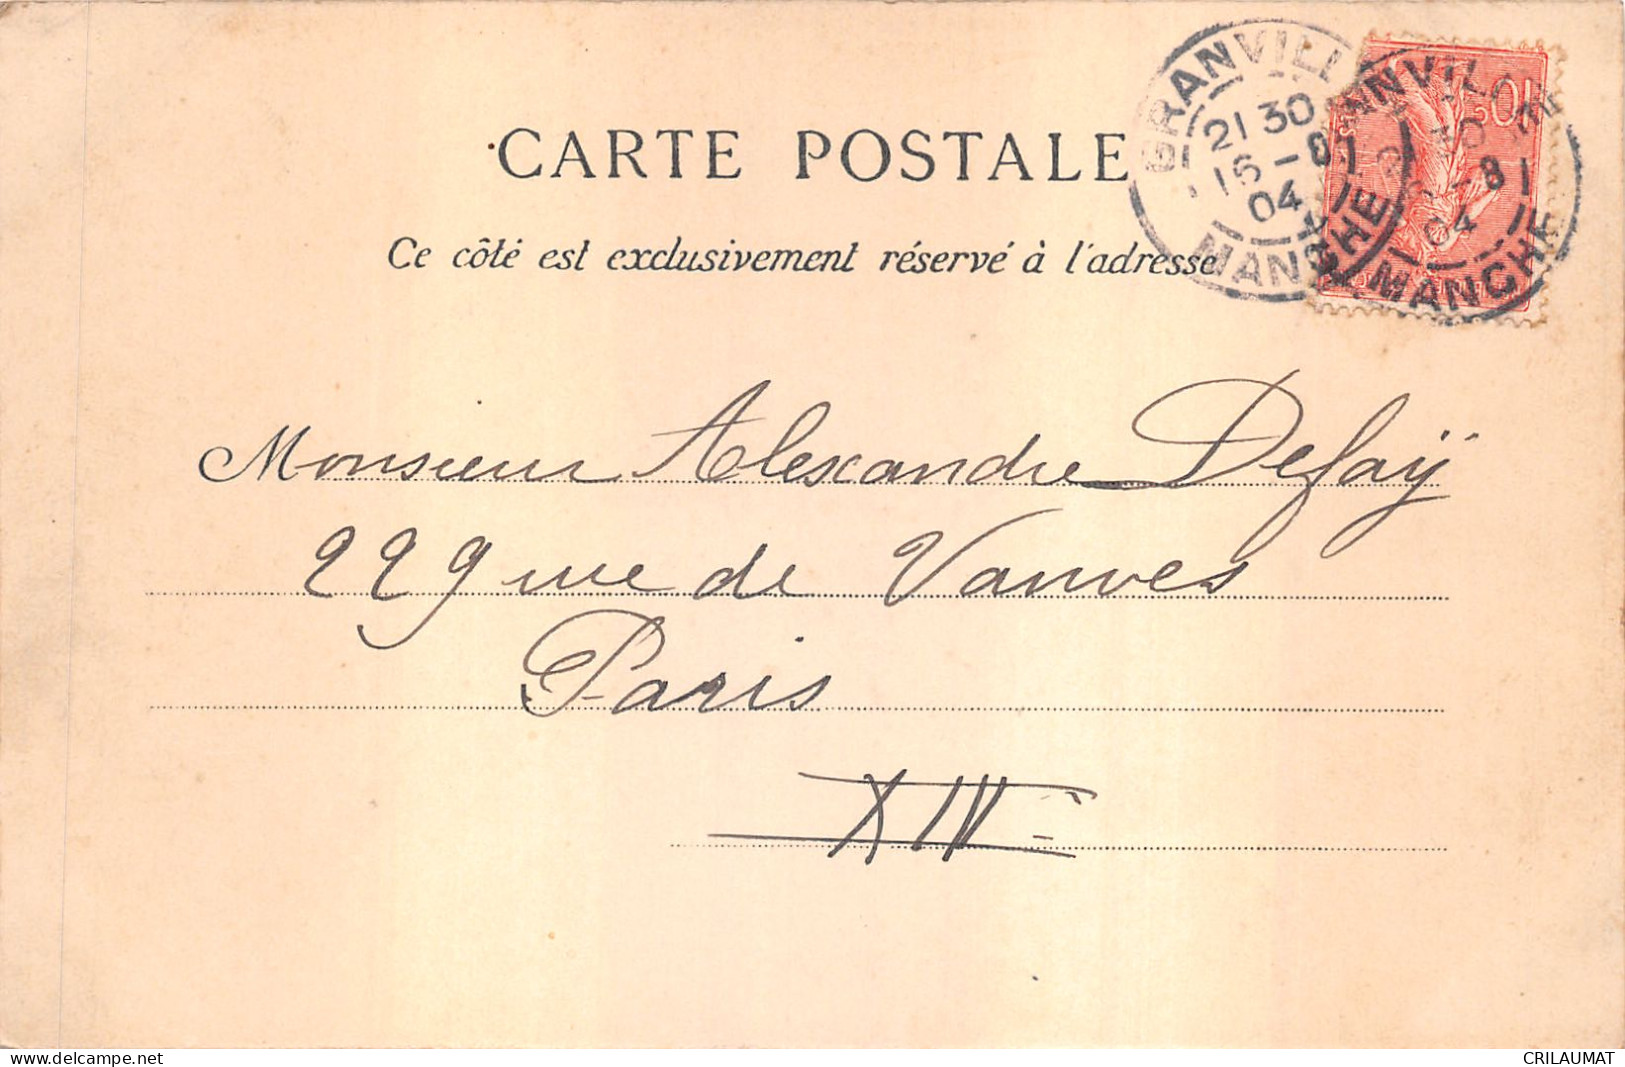 CARTE POSTALE
Ce côté est exclusivement réservé à l'adresse
GRANVILL
21 30
16 - 8
04
MANCHE
ANVILL
30
- 8
04
MANCHE
10
Monsieur Alexandre Defaÿ
229 rue de Vanves
Paris
XIVe
www.delcampe.net
CRILAUMAT